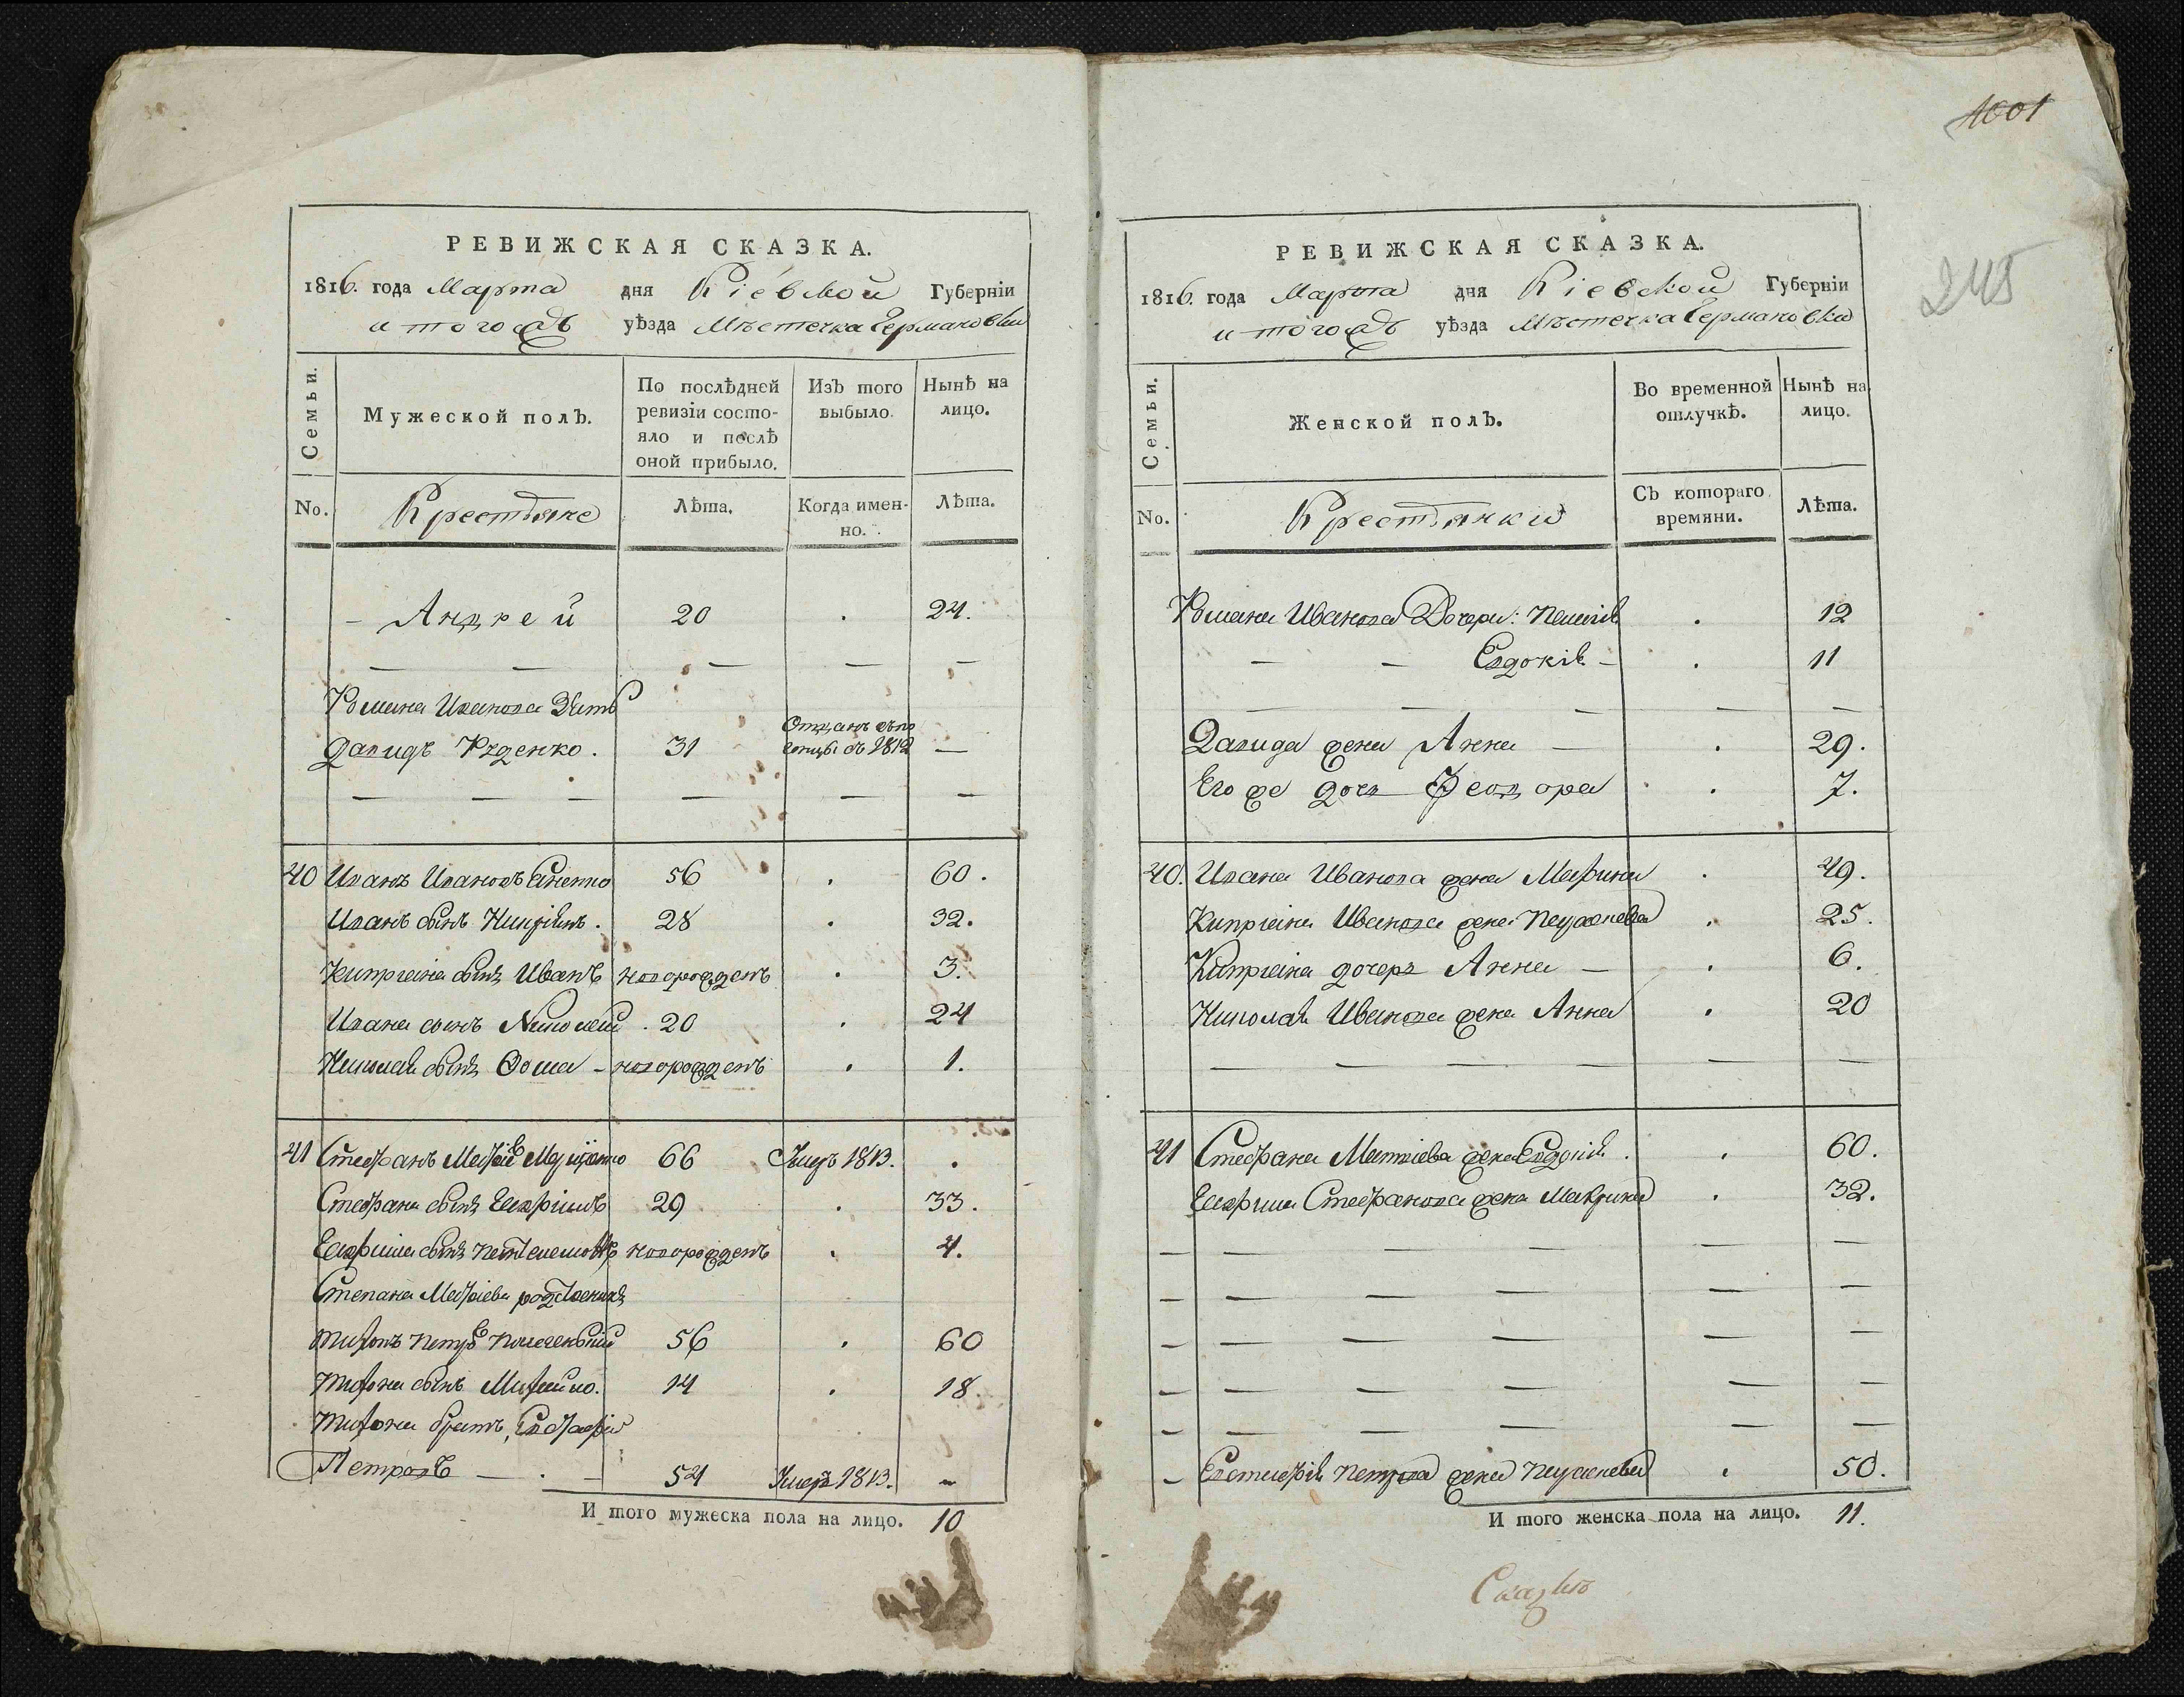 РЕВИЖСКАЯ СКАЗКА.
1816. года Марта дня Кіевской Губерніи
и тогожъ уѣзда Мѣстечка Германовки
Семьи.
Мужеской полъ.
По послѣдней ревизіи состояло и послѣ оной прибыло.
Изъ того выбыло.
Нынѣ на лицо.
No. Крестьяне Лѣта. Когда именно. Лѣта.
- Андрей 20 . 24.
Романа Иванова Зять
Давидъ Руденко. 31 Отданъ въ 1812 —
40 Иванъ Ивановъ 56 . 60.
Ивана сынъ Кипріянъ. 28 . 32.
Кипріяна сынъ Иванъ новорожденъ . 3.
Ивана сынъ Николай . 20 . 24
Николая сынъ Фома - новорожденъ . 1.
41 Стефанъ 66 Умеръ 1813. .
Стефана сынъ Евфримъ 29 . 33.
Евфрима сынъ Пантелемонъ новорожденъ . 4.
Степана Матѳіева родственникъ
Тихонъ Петровъ 56 . 60
Тихона сынъ Михайло. 14 . 18.
Тихона братъ, Евстафій
Петровъ — . — 54 Умеръ 1813. —
И того мужеска пола на лицо. 10
1001
245
РЕВИЖСКАЯ СКАЗКА.
1816. года Марта дня Кіевской Губерніи
и тогожъ уѣзда Мѣстечка Германовки
Семьи.
Женской полъ.
Во временной отлучкѣ.
Нынѣ на лицо.
No. Крестьянки Съ котораго времяни. Лѣта.
Романа Иванова Дочери: Пелагія . 12
— — Евдокія — . 11
Давида жена Анна — . 29.
Его же дочь Феодора . 7.
40. Ивана Иванова жена Марина . 49.
Кипріяна Иванова жена . 25.
Кипріяна дочерь Анна — . 6.
Николая Иванова жена Анна . 20
41 Стефана Матѳіева жена Евдокія . . 60.
Евфрима Стефанова жена Макрина . 32.
— Евстафія Петрова жена . 50.
И того женска пола на лицо. 11.